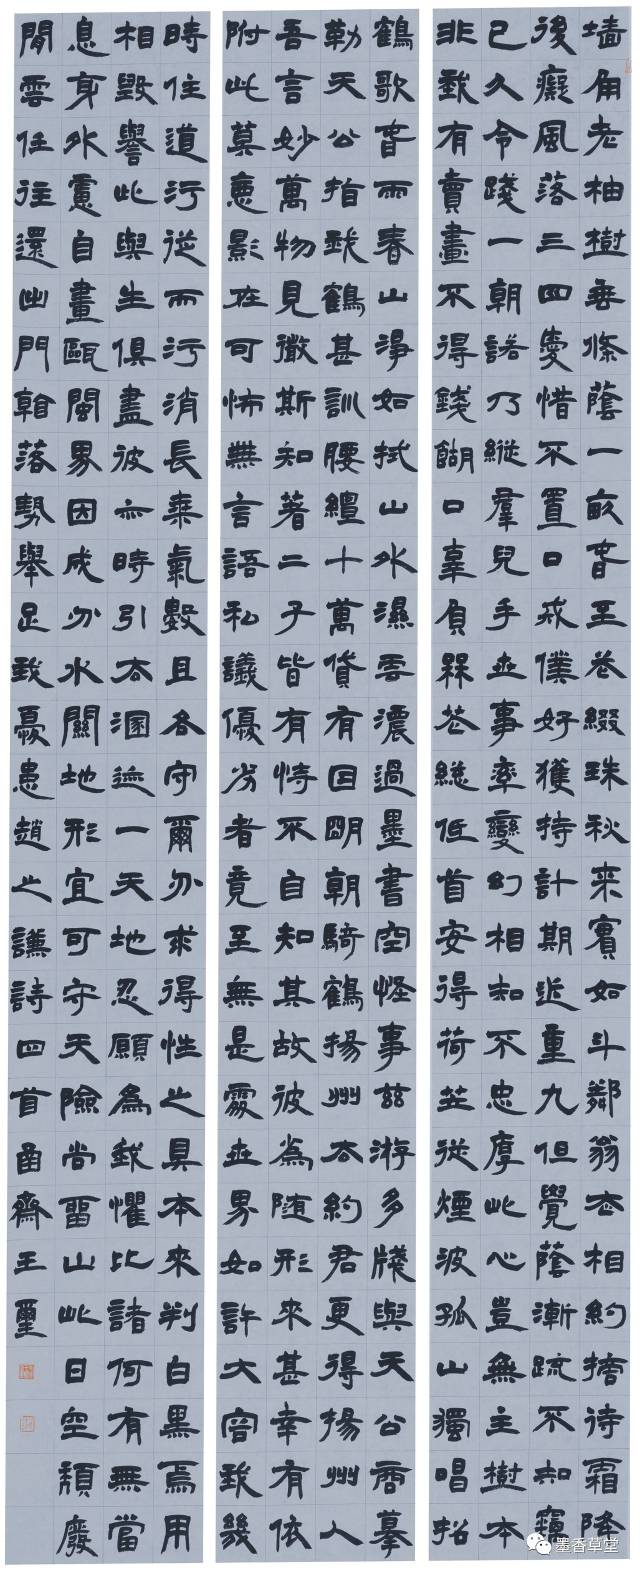 墙角老柚樹垂條蔭一畝旾至花綴珠秋来實如斗鄰翁去相約摘待霜降
後癡風落三四愛惜不置口戒僕好獲持計期近重九但覺蔭漸疏不知竊
已久令踐一朝諾乃縱羣兒手世事率變幻相知不忠摩此心豈無主樹本
非我有賣畫不得錢餬口辜負罪花總低首安得荷芰從煙波孤山獨唱招
鶴歌旾雨春山淨如拭山外濕雲濃過墨書空怪事茲游多牋與天公商摹
勒天公指我鶴甚訓腰纏十萬貸有因明朝騎鶴揚州去約君更得揚州人
吾言妙萬物見微斯知著二子皆有恃不自知其故彼為随形來甚幸有依
附此莫惡影在可怖無言語私議優劣者竟至無是處世界如許大容我幾
時住道污從而污消長乘氣數且各守爾分求得性之具本來判白黑焉用
相毀譽此與生俱盡彼亦時引去溷迹一天地忍願為我懼比諸何有無當
息身外慮自畫甌閩界因成分水關地形宜可守天險尚留山此日空頹廢
閒雲任往還出門落勢舉足我憂患趙之謙詩四首甬齋王璽
墨香草堂